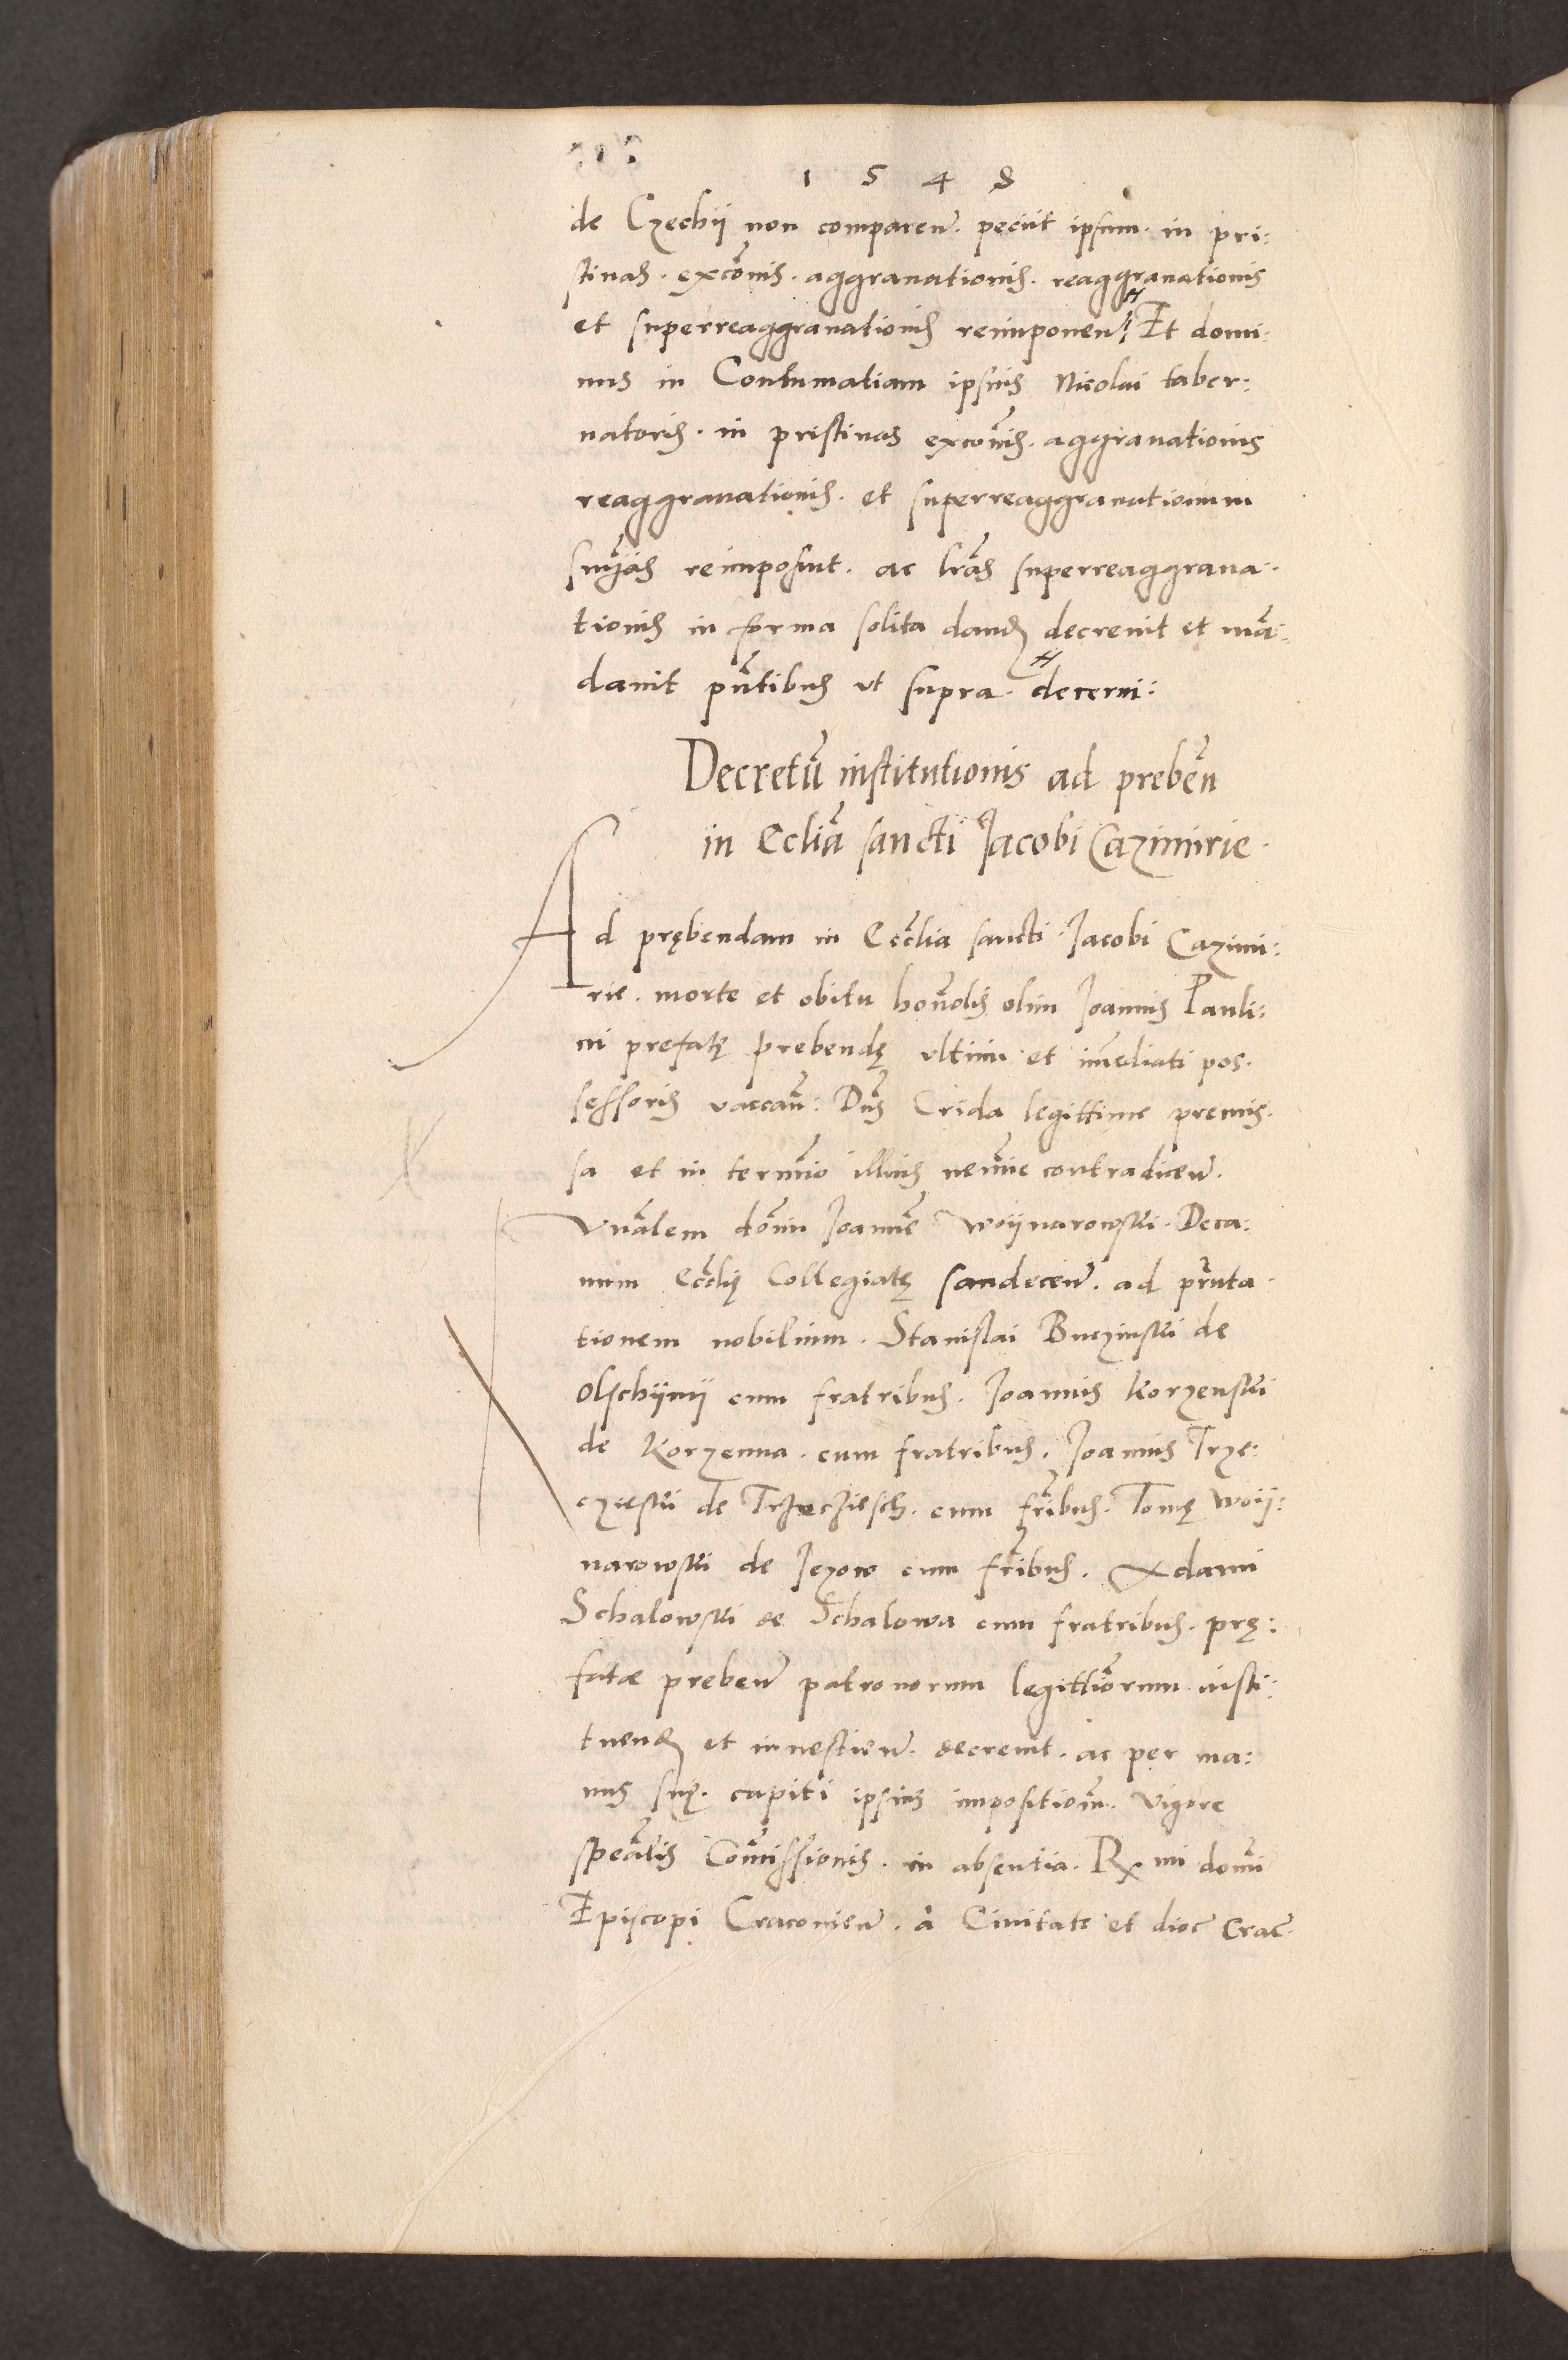 1 5 4 8
de Czechÿ non comparen̄. peciit ipsum. in pri:
stinas. exco͞nis. aggrauationis. reaggrauationis
et superreaggrauationis reimponen̄. Et domi:
nus in Contumatiam ipsius Nicolai taber:
natoris. in pristinas exco͞nis. aggrauationis
reaggrauationis. et superreaggrauationum
sn͞ias reimposuit. ac lr͞as superreaggraua.
tionis in forma solita dand decreuit et ma͞:
dauit pn͞tibus vt supra. decerni:
Decretu͞ institutionis ad preben͞
in Eclia͞ sancti Jacobi Cazimirie.
Ad prębendam in Ecc͞lia sancti Jacobi Cazimi:
rie. morte et obitu hon͞olis olim Joannis Pauli:
ni prefatę prebendę vltimi et im͞ediati pos.
sessoris vaccan͞: Dn͞s Crida legittime premis.
sa et in termi͞o illius nemi͞e contradicen̄.
Vn͞alem do͞nu Joanne͞ Woÿnarowski. Deca:
num Ecc͞lię Collegiatę sandecen̄. ad pn͞ta.
tionem nobilium. Stanislai Buczinski de
Olschÿnÿ cum fratribus. Joannis Korzenski
de Korzenna. cum fratribus. Joannis Trze:
czieski de Trzecziesch. cum fr͞ibus. Tomę Woÿ:
narowski de Jezow cum fr͞ibus. Adami
Schalowski de Schalowa cum fratribus. prę:
fatæ preben̄ patronorum legitti͞orum insti:
tuend et inuestien̄. decreuit. ac per ma:
nus suę. capiti ipsius impositio͞m. vigore
spea͞lis Com͞issionis. in absentia. Rx mi dom͞i
Episcopi Cracouien̄. a Ciuitate et dioc͞ Crac͞.